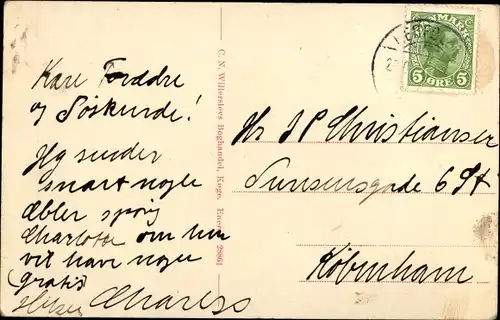 Kære Forældre
og Søskende!
Jeg sender
snart nogle
Æbler spørg
Charlotte om hun
vil have nogen
(gratis)
Hilsen Charles
C. N. Willerslevs Boghandel, Køge. 28861
DANMARK
5 ØRE 5
Hr J P Christiansen
6 St
København